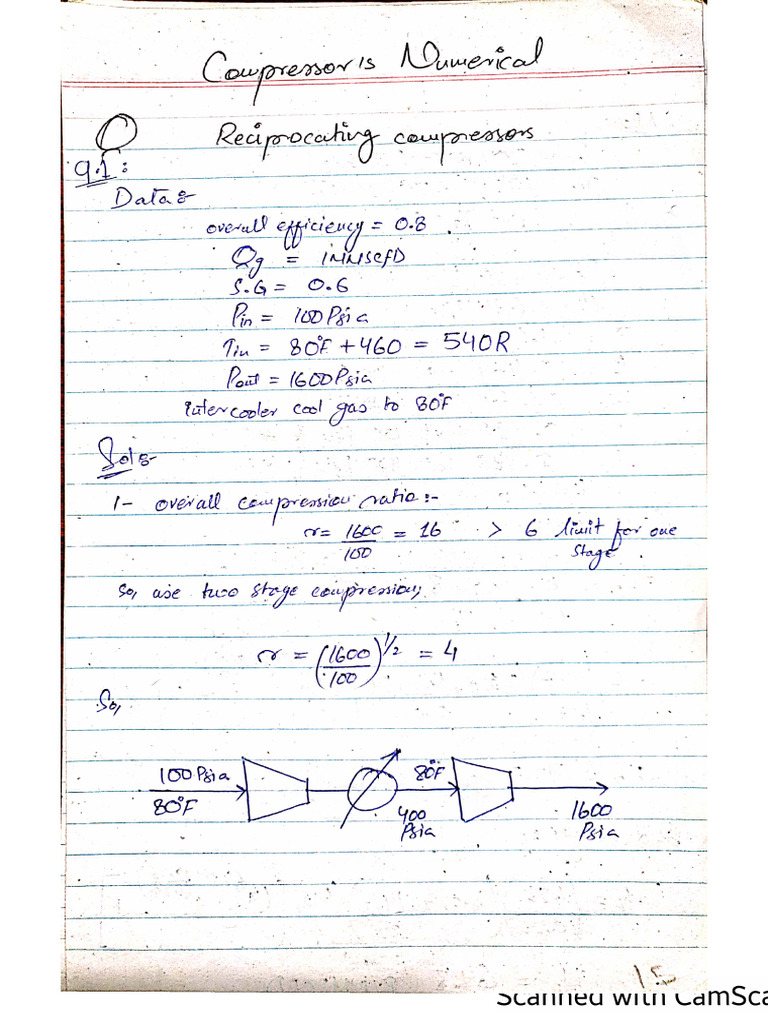 Compressor's Numerical
Q Reciprocating compressors
9.1:
Data:-
overall efficiency = 0.8
Qg = 1MMscfD
S.G = 0.6
Pin = 100 Psia
Tin = 80°F + 460 = 540R
Pout = 1600 Psia
intercooler cool gas to 80°F
Sol:-
1- overall compression ratio:-
r = 1600/100 = 16 > 6 limit for one stage
So, use two stage compression;
r = (1600/100)^1/2 = 4
So,
100 Psia 80°F
80°F 400 Psia 1600 Psia
15
Scanned with CamSca